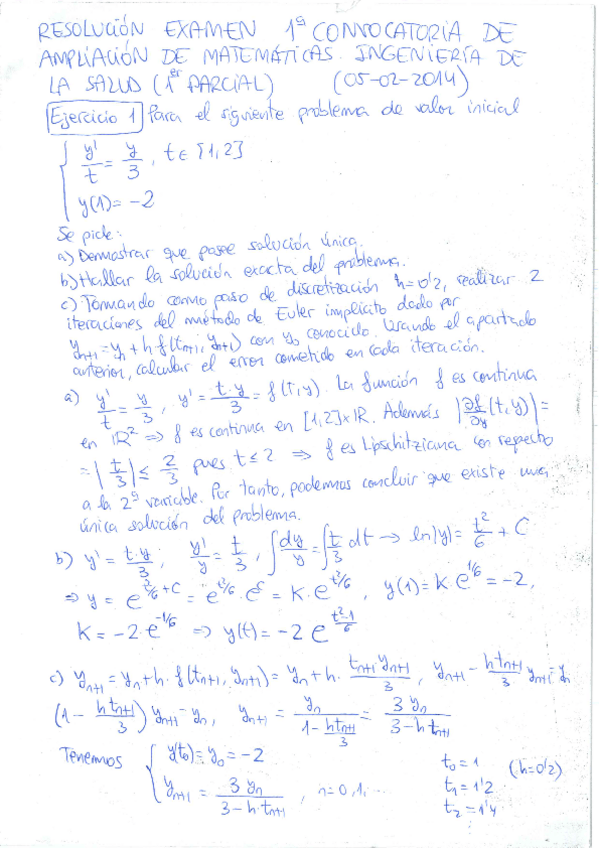 RESOLUCIÓN EXAMEN 1ª CONVOCATORIA DE
AMPLIACIÓN DE MATEMÁTICAS. INGENIERÍA DE
LA SALUD (1er PARCIAL) (05-02-2014)
Ejercicio 1 Para el siguiente problema de valor inicial
{ y'/t = y/3, t∈[1,2]
y(1) = -2
Se pide:
a) Demostrar que posee solución única.
b) Hallar la solución exacta del problema.
c) Tomando como paso de discretización h=0'2, realizar 2
iteraciones del método de Euler implícito dado por
y_{n+1} = y_n + h f(t_{n+1}, y_{n+1}) con y_0 conocido. Usando el apartado
anterior, calcular el error cometido en cada iteración.
a) y'/t = y/3, y' = t·y/3 = f(t,y). La función f es continua
en ℝ² ⇒ f es continua en [1,2]×ℝ. Además |∂f/∂y (t,y)| =
= |t/3| ≤ 2/3 pues t≤2 ⇒ f es Lipschitziana con respecto
a la 2ª variable. Por tanto, podemos concluir que existe una
única solución del problema.
b) y' = t·y/3, y'/y = t/3, ∫dy/y = ∫t/3 dt → ln|y| = t²/6 + C
⇒ y = e^{t²/6 + C} = e^{t²/6}·e^C = K·e^{t²/6}, y(1) = K·e^{1/6} = -2,
K = -2·e^{-1/6} ⇒ y(t) = -2 e^{(t²-1)/6}
c) y_{n+1} = y_n + h·f(t_{n+1}, y_{n+1}) = y_n + h· t_{n+1} y_{n+1}/3, y_{n+1} - h t_{n+1}/3 y_{n+1} = y_n
(1 - h t_{n+1}/3) y_{n+1} = y_n, y_{n+1} = y_n/(1 - h t_{n+1}/3) = 3 y_n/(3 - h t_{n+1})
Tenemos { y(t_0) = y_0 = -2
y_{n+1} = 3 y_n/(3 - h·t_{n+1}), n=0,1,..
t_0 = 1 (h=0'2)
t_1 = 1'2
t_2 = 1'4